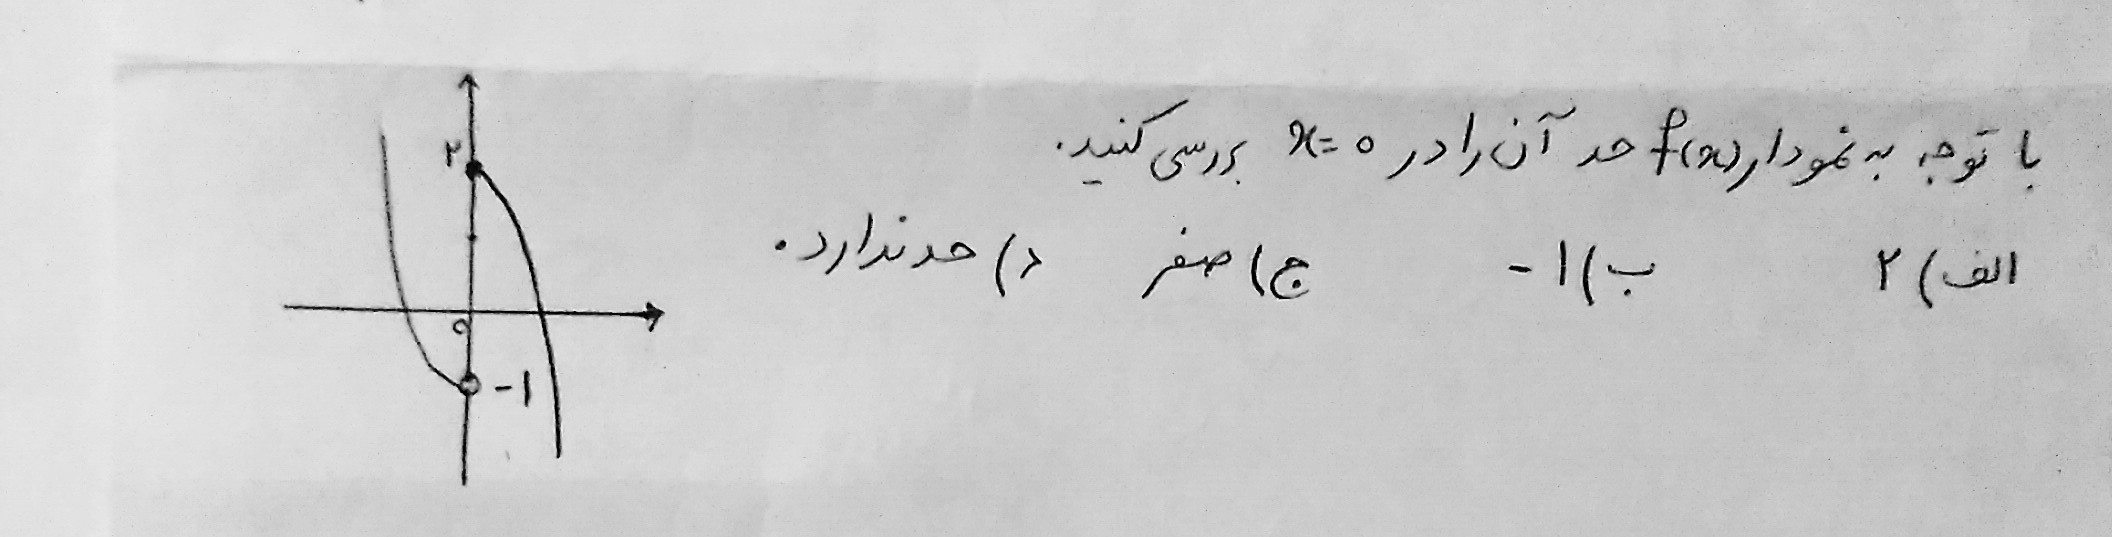 با توجه به نمودار f(x) حد آن را در x=0 بررسی کنید.
الف) ۲ ب) -۱ ج) صفر د) حد ندارد.
۲
0
-1